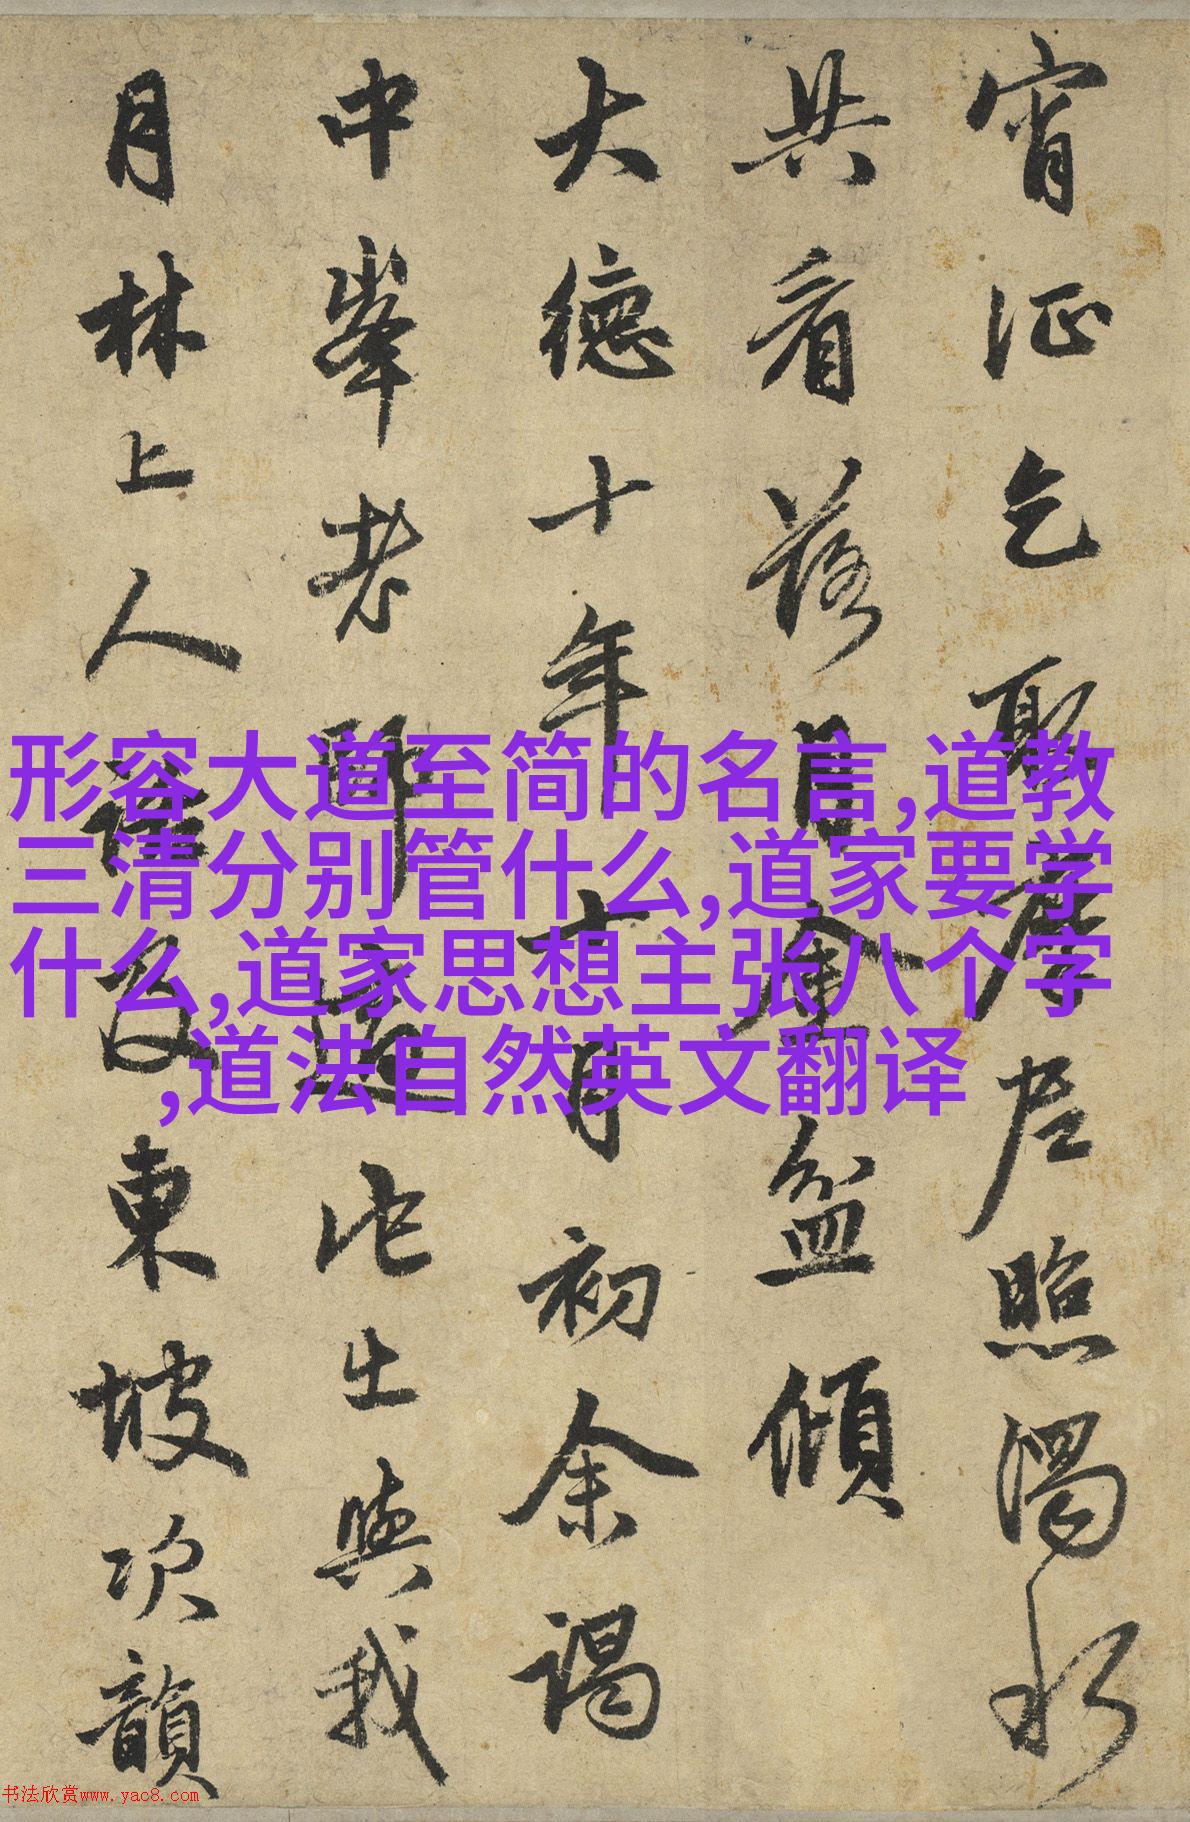 宵征乞取摩尼照濁水
共看落月金盆傾
大德十年十月初余謁
中峯老師適他出與我
月林上人及東坡次韻
形容大道至简的名言,道教
三清分别管什么,道家要学
什么,道家思想主张八个字
,道法自然英文翻译
书法欣赏www.yac8.com